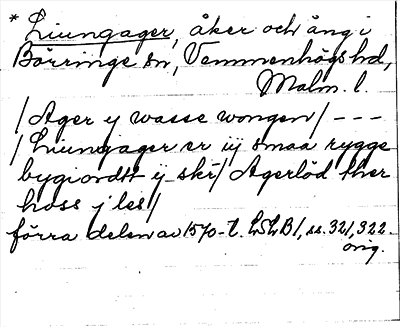 * Liungager, åker och äng i
Börringe sn, Vemmenhögs hd,
Malm. l.
/Ager y wasse wongen/ - - -
/Liungager er iij smaa rygge
bygiordtt ij skr/ Agerlöd ther
hoss j les/
förra delen av 1570-t. LSLB1, ss. 321, 322.
orig.